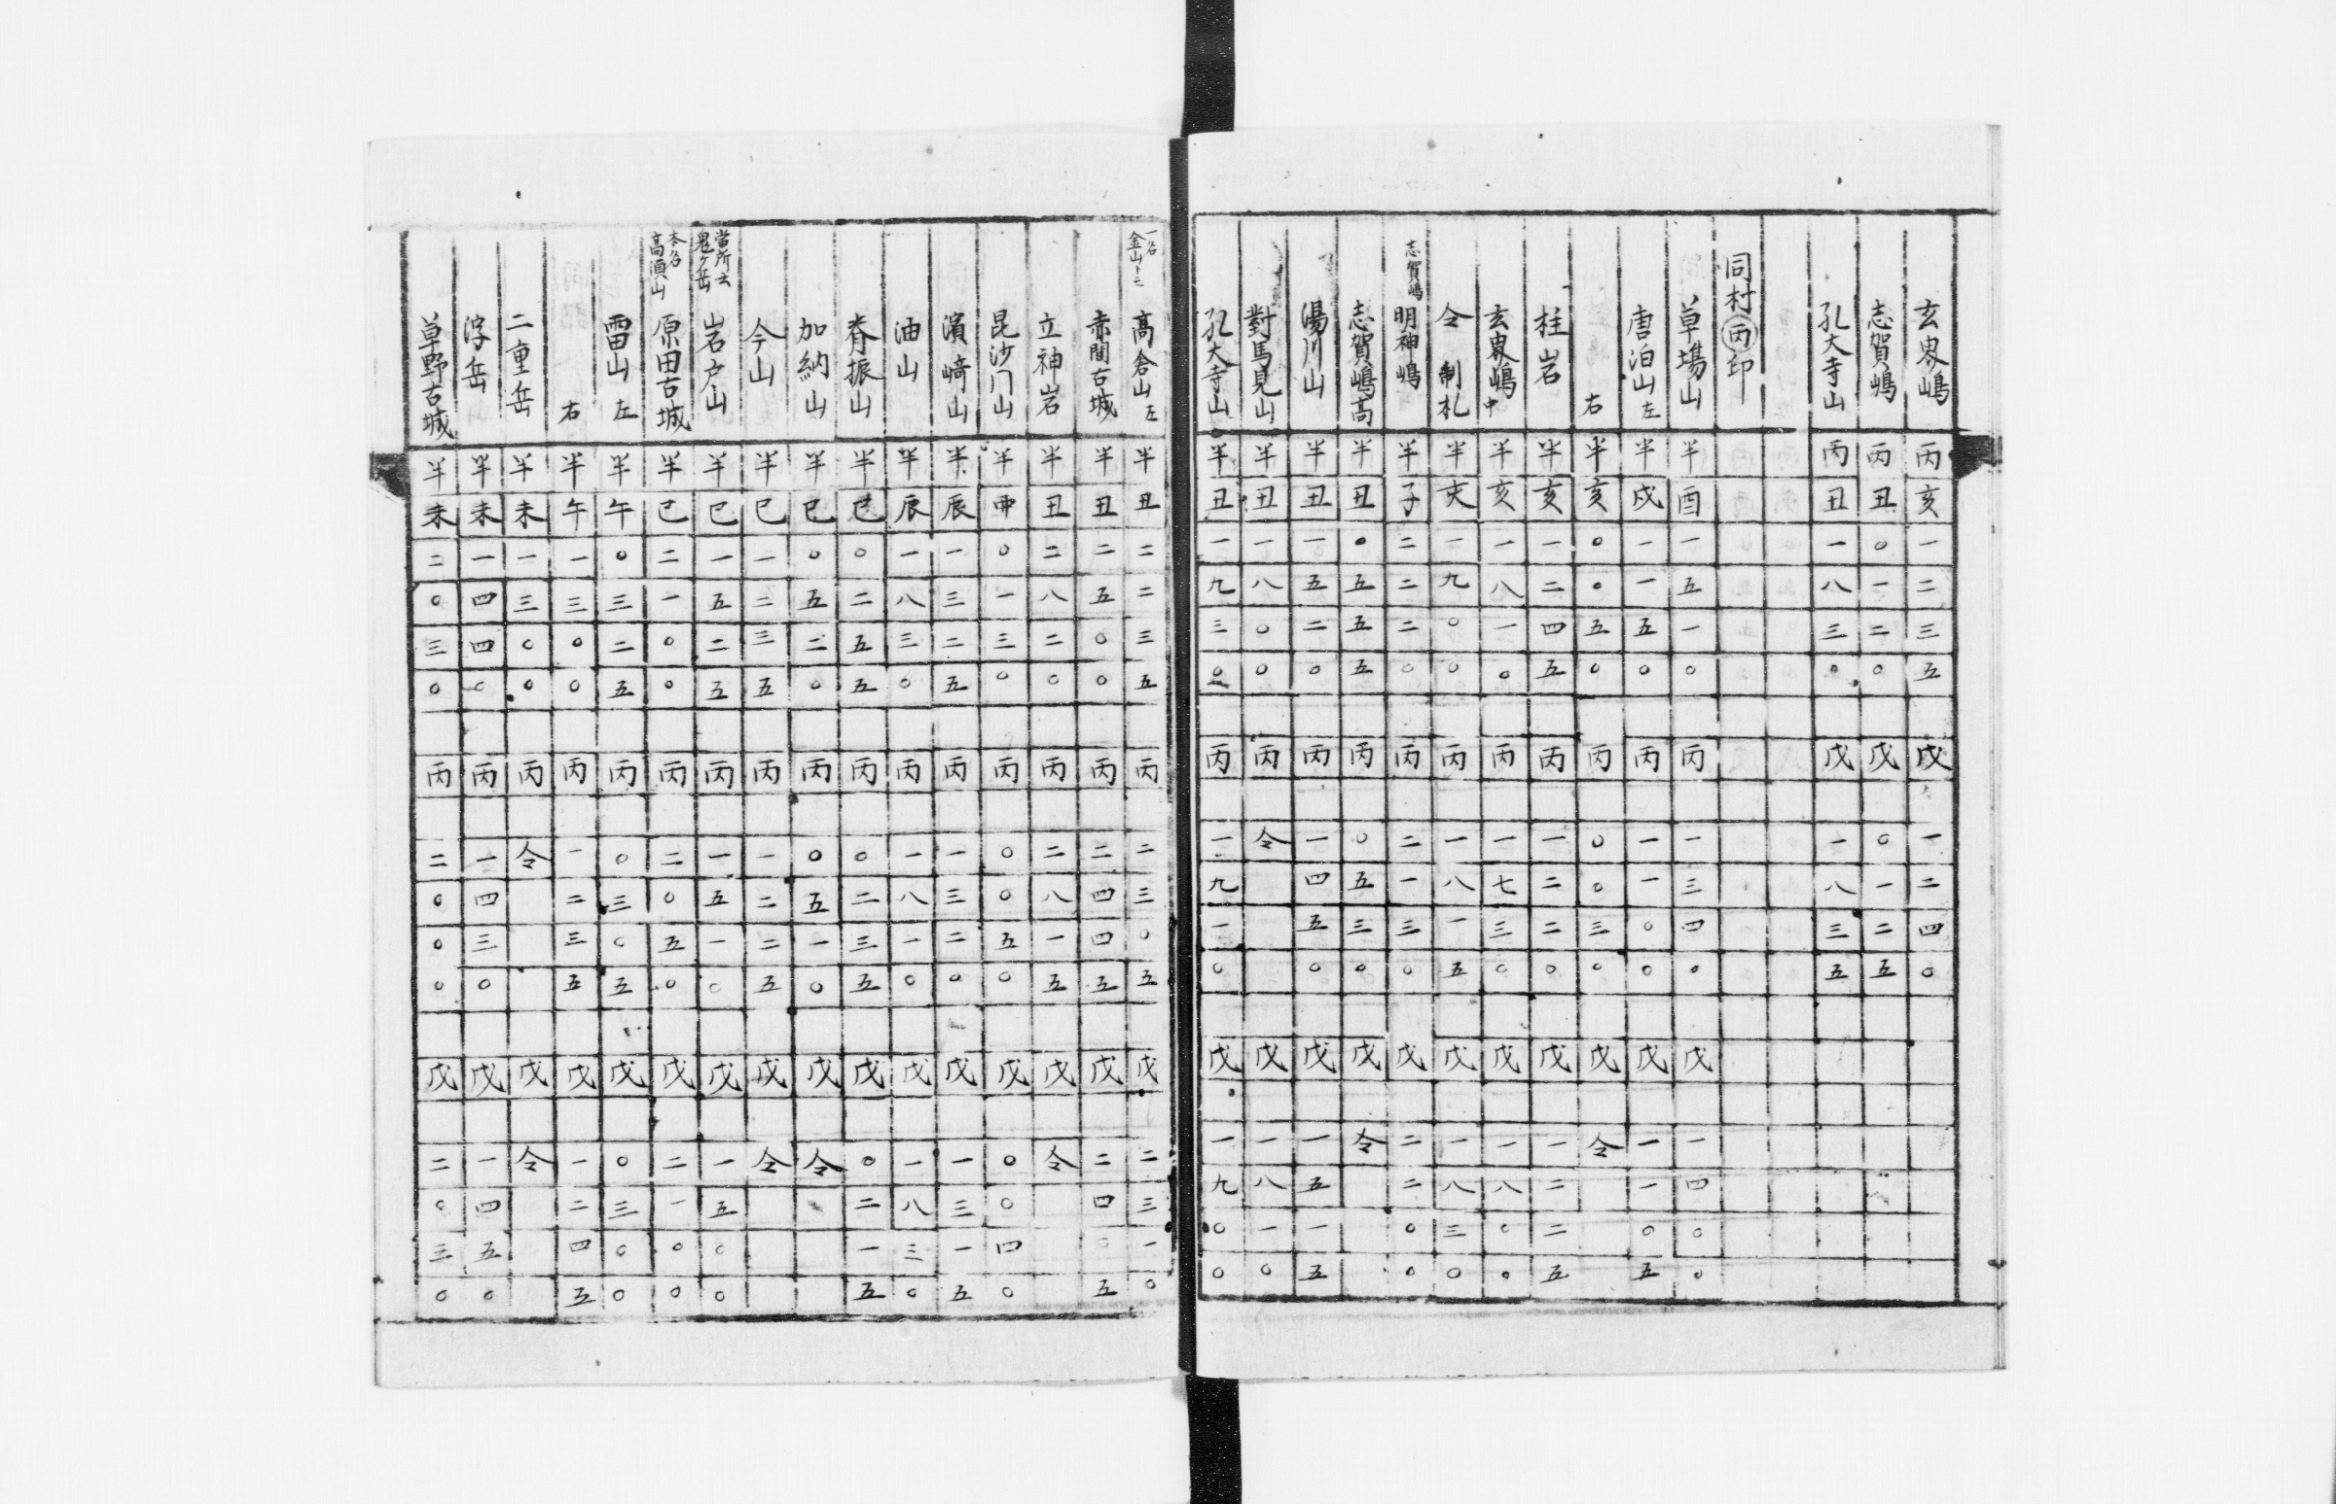 玄界嶋 丙 亥 一 二 三 五 戊 一 二 四 〇
志賀嶋 丙 丑 〇 一 二 〇 戊 〇 一 二 五
孔大寺山 丙 丑 一 八 三 〇 戊 一 八 三 五
同村丙印
草場山 半 酉 一 五 一 〇 丙 一 三 四 〇 戊 一 四 〇 〇
唐泊山左 半 戌 一 一 五 〇 丙 一 一 〇 〇 戊 一 一 〇 五
右 半 亥 〇 〇 五 〇 丙 〇 〇 三 〇 戊 令
柱岩 半 亥 一 二 四 五 丙 一 二 二 〇 戊 一 二 二 五
玄界嶋中 半 亥 一 八 一 〇 丙 一 七 三 〇 戊 一 八 〇 〇
令 制札 半 亥 一 九 〇 〇 丙 一 八 一 五 戊 一 八 三 〇
志賀嶋 明神嶋 半 子 二 二 二 〇 丙 二 一 三 〇 戊 二 二 〇 〇
志賀嶋高 半 丑 〇 五 五 五 丙 〇 五 三 〇 戊 令
湯川山 半 丑 一 五 二 〇 丙 一 四 五 〇 戊 一 五 一 五
對馬見山 半 丑 一 八 〇 〇 丙 令 戊 一 八 一 〇
孔大寺山 半 丑 一 九 三 〇 丙 一 九 一 〇 戊 一 九 〇 〇
一名金山ト云 高倉山左 半 丑 二 二 三 五 丙 二 三 〇 五 戊 二 三 一 〇
赤間古城 半 丑 二 五 〇 〇 丙 二 四 四 五 戊 二 四 〇 五
立神岩 半 丑 二 八 二 〇 丙 二 八 一 五 戊 令
昆沙门山 半 〇 一 三 〇 丙 〇 〇 五 〇 戊 〇 〇 四 〇
濱﨑山 半 辰 一 三 二 五 丙 一 三 二 〇 戊 一 三 一 五
油山 半 辰 一 八 三 〇 丙 一 八 一 〇 戊 一 八 三 〇
脊振山 半 巳 〇 二 五 五 丙 〇 二 三 五 戊 〇 二 一 五
加納山 半 巳 〇 五 二 〇 丙 〇 五 一 〇 戊 令
今山 半 巳 一 二 三 五 丙 一 二 二 五 戊 令
當所云鬼ケ岳 岩戸山 半 巳 一 五 二 五 丙 一 五 一 〇 戊 一 五 〇 〇
本名高須山 原田古城 半 巳 二 一 〇 〇 丙 二 〇 五 〇 戊 二 一 〇 〇
雷山左 半 午 〇 三 二 五 丙 〇 三 〇 五 戊 〇 三 〇 〇
右 半 午 一 三 〇 〇 丙 一 二 三 五 戊 一 二 四 五
二重岳 半 未 一 三 〇 〇 丙 令 戊 令
浮岳 半 未 一 四 四 〇 丙 一 四 三 〇 戊 一 四 五 〇
草野古城 半 未 二 〇 三 〇 丙 二 〇 〇 〇 戊 二 〇 三 〇